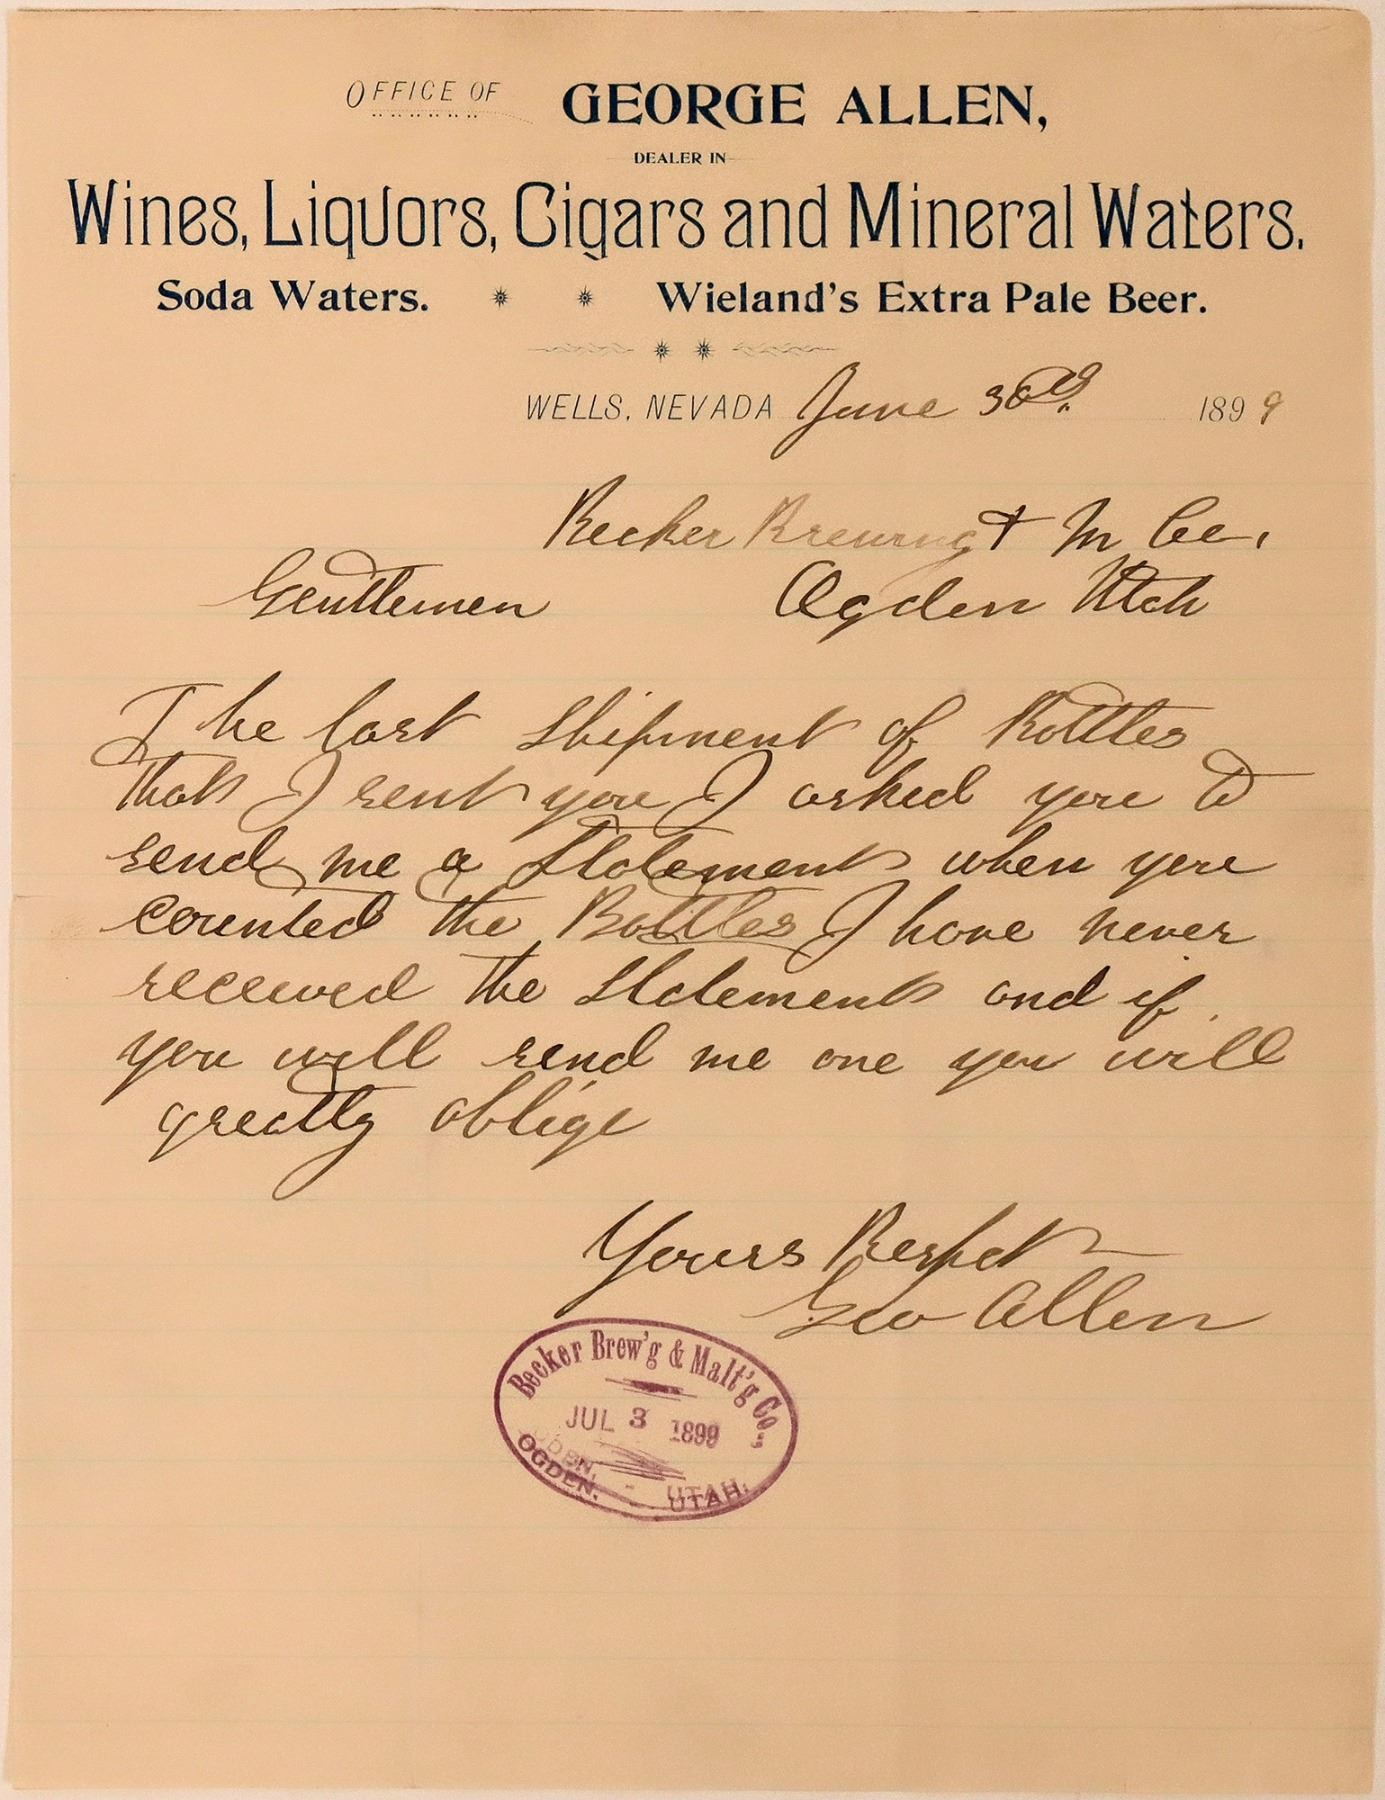 OFFICE OF GEORGE ALLEN,
DEALER IN
Wines, Liquors, Cigars and Mineral Waters.
Soda Waters. * * Wieland's Extra Pale Beer.
WELLS, NEVADA June 30th 1899
Becker Brewing & M Co.,
Gentlemen Ogden Utah
The last Shipment of Bottles
that I sent you I asked you to
send me a Statement when you
counted the Bottles I have never
received the Statement and if
you will send me one you will
greatly oblige
Yours Respct
Geo Allen
Becker Brew'g & Malt'g Co.,
JUL 3 1899
OGDEN. - UTAH.